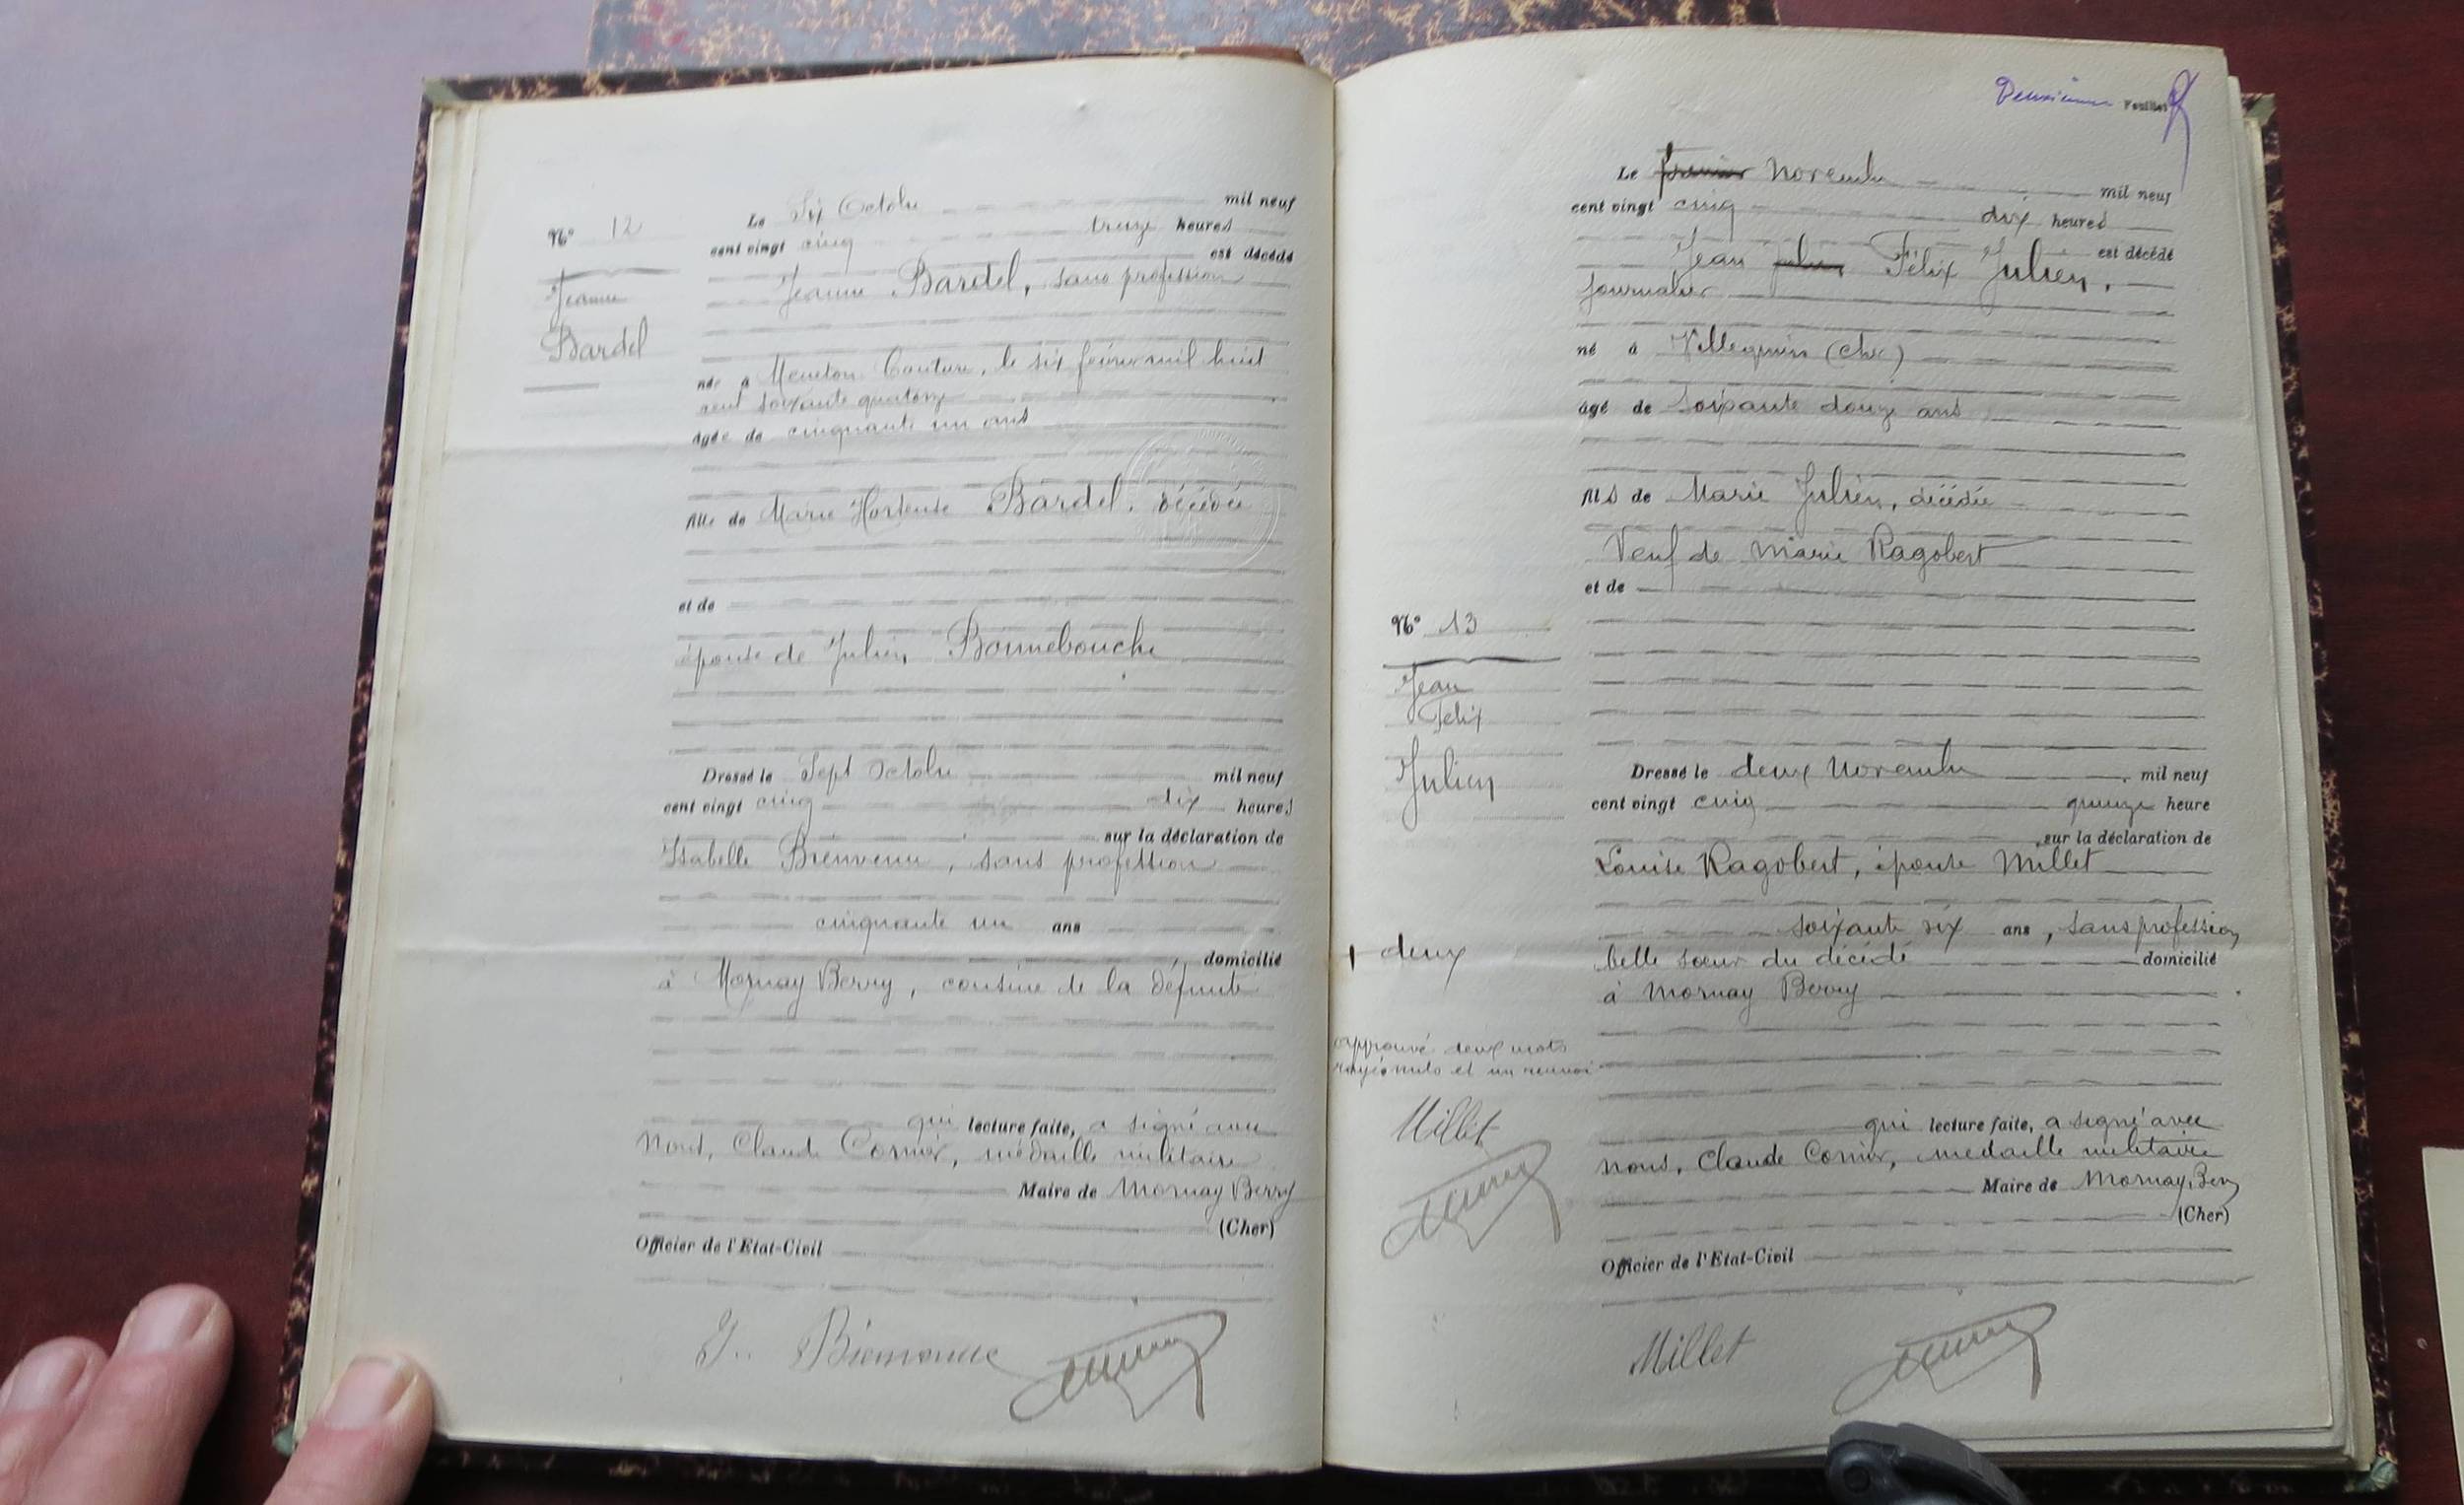 N° 12
Jeanne
Bardel
Le Six Octobre mil neuf
cent vingt cinq treize heures
est décédé
Jeanne Bardel, sans profession
née à Menetou Couture, le six février mil huit
cent soixante quatorze
âgée de cinquante un ans
fille de Marie Hortense Bardel, décédée
et de
épouse de Julien Bonnebouche
Dressé le Sept Octobre mil neuf
cent vingt cinq dix heures
sur la déclaration de
Isabelle Bienvenu, sans profession
cinquante un ans
domicilié
à Mornay Berry, cousine de la défunte
qui lecture faite, a signé avec
Nous, Claude Cornier, médaille militaire
Maire de Mornay Berry
(Cher)
Officier de l'Etat-Civil
Deuxième Feuillet
Le premier Novembre mil neuf
cent vingt cinq dix heures
est décédé
Jean Julien Félix Julien,
journalier
né à Villequiers (Cher)
âgé de soixante douze ans
fils de Marie Julien, décédée
Veuf de Marie Ragobert
et de
N° 13
Jean
Félix
Julien
Dressé le deux Novembre mil neuf
cent vingt cinq quinze heure
sur la déclaration de
Louise Ragobert, épouse Millet
soixante six ans, sans profession
+ deux
belle sœur du décédé domicilié
à Mornay Berry
approuvé deux mots
rayés nuls et un renvoi
Millet
qui lecture faite, a signé avec
nous, Claude Cornier, médaille militaire
Maire de Mornay Berry
(Cher)
Officier de l'Etat-Civil
Millet